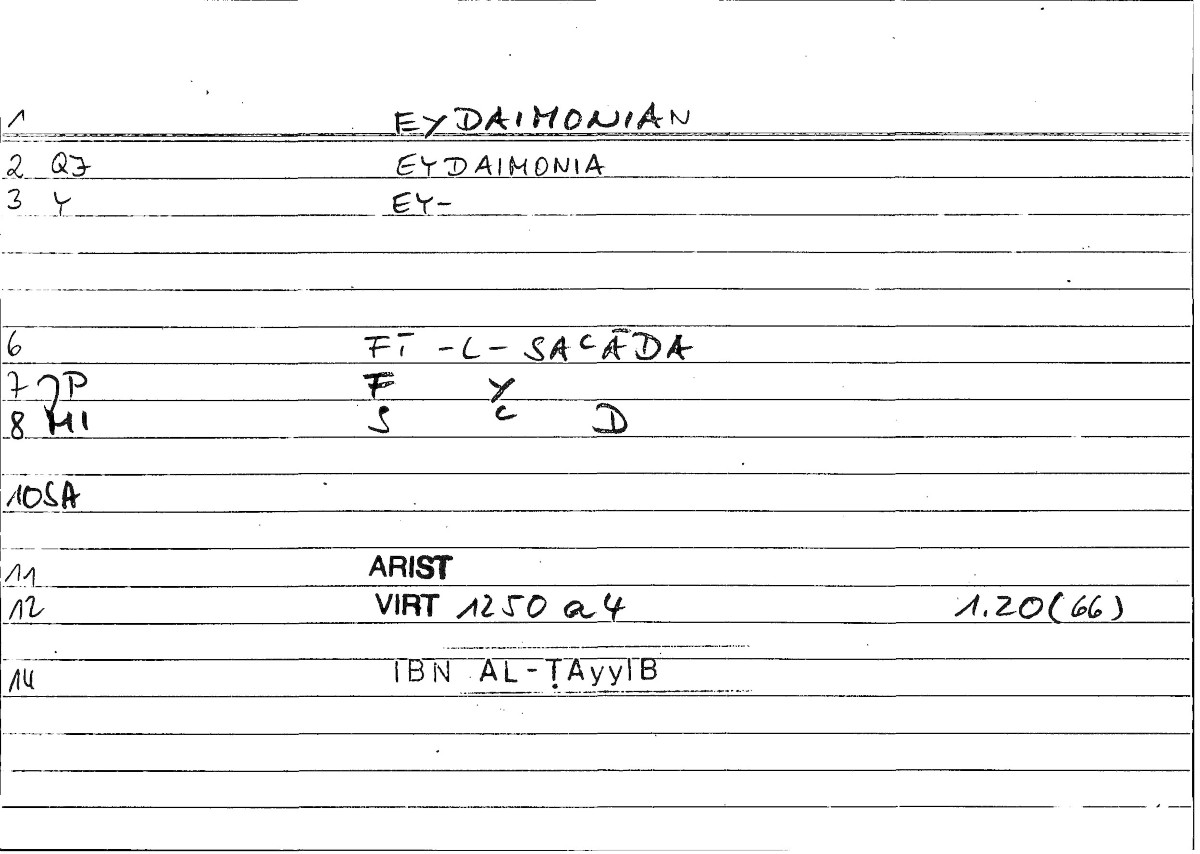 1 EYDAIMONIAN
2 QJ EYDAIMONIA
3 Y EY-
6 FĪ -L- SAcĀDA
7 P F Y
8 MI S c D
10 SA
11 ARIST
12 VIRT 1250 a 4 1.20(66)
14 IBN AL-ṬAyyIB